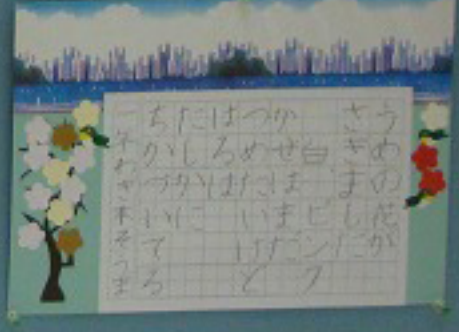 うめの花が
さきました
白、ピンク
かぜはまだ
つめたいけど
はるは
たしかに
ちかづいてる